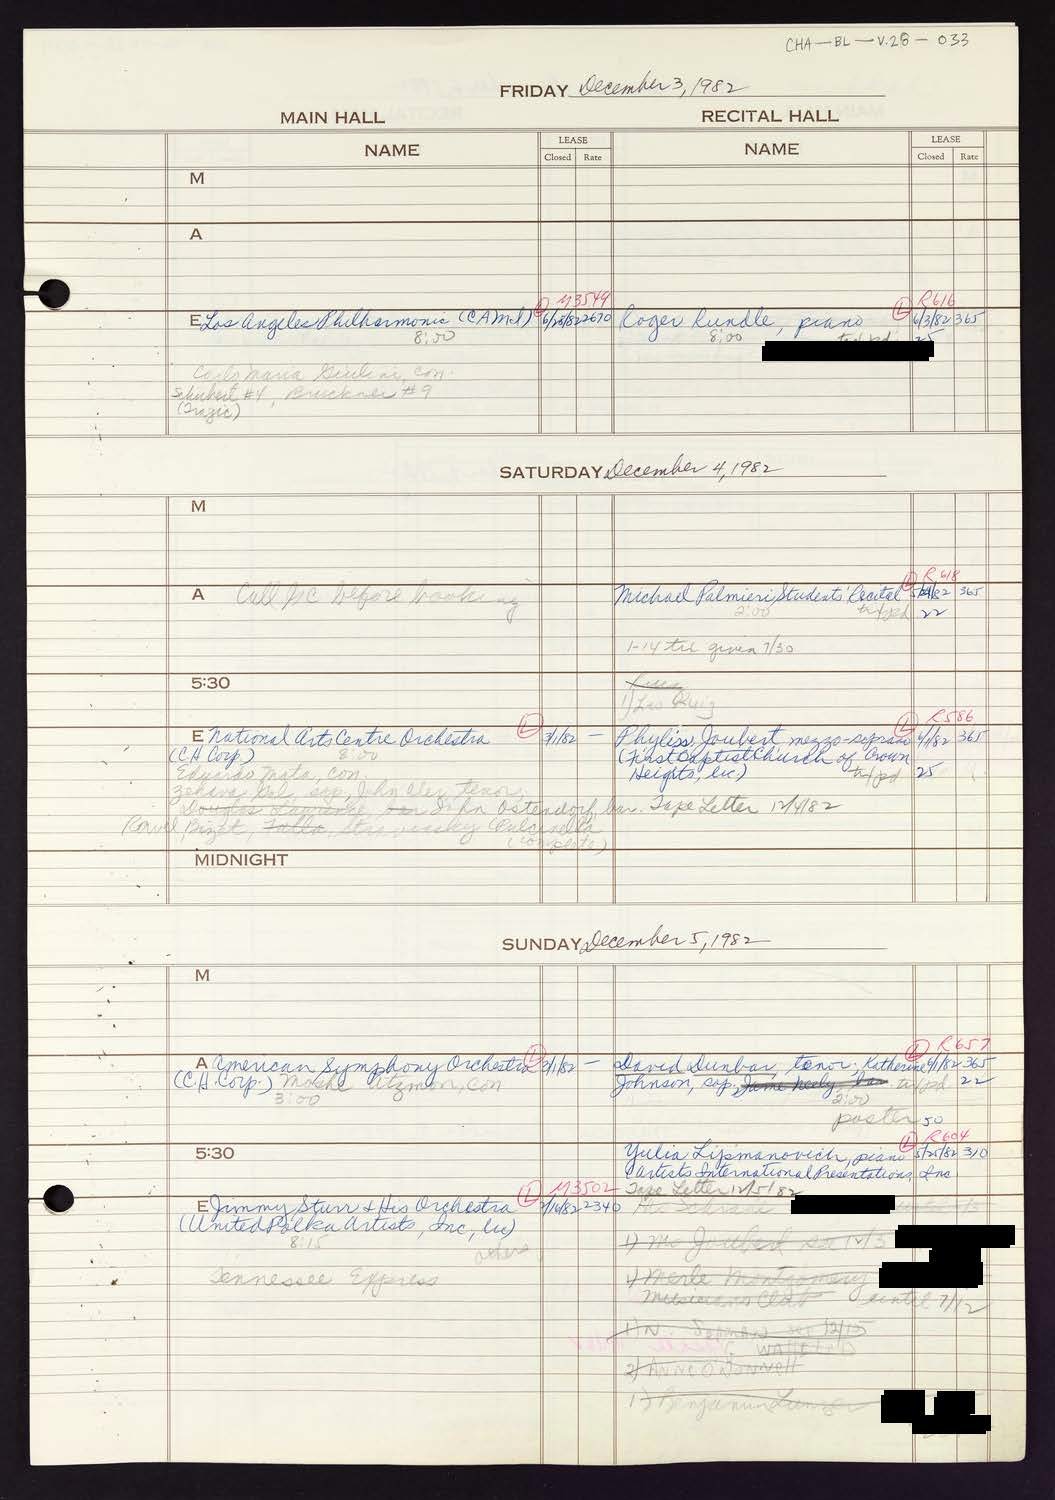 CHA-BL-V.28-033
FRIDAY December 3, 1982
MAIN HALL
RECITAL HALL
NAME
LEASE
Closed Rate
NAME
LEASE
Closed Rate
M
A
M3549
E Los Angeles Philharmonic (CAMI) L 6/28/82 2670
8:00
Carlo Maria Giulini, con.
Schubert #4, Bruckner #9
(Tragic)
R616
Roger Rundle, piano L 6/3/82 365
8:00 tr/pd 25
SATURDAY December 4, 1982
M
A Call JC before booking
R618
Michael Palmieri, Students' Recital L 365
2:00 tr/pd 22
1-14 til given 7/30
5:30
1) Los Ruiz
E National Arts Centre Orchestra L 3/1/82 —
(C.H. Corp.) 8:00
Eduardo Mata, con.
Zehava Gal, sop, John Aler, tenor,
Douglas Lawrence bar John Ostendorf, bar.
Ravel, Bizet, Falla, Stravinsky Pulcinella
(complete)
R586
Phyliss Joubert, mezzo-soprano L 4/1/82 365
(First Baptist Church of Crown
Heights, lic.) tr/pd 25
Tape Letter 12/4/82
MIDNIGHT
SUNDAY December 5, 1982
M
A American Symphony Orchestra L 3/1/82 —
(C.H. Corp.) Moshe Atzmon, con
3:00
R657
David Dunbar, tenor; Katherine L 9/1/82 365
Johnson, sop, Jame Neely, bar tr/pd 22
2:00
poster 50
5:30
R604
Yulia Lipmanovich, piano L 5/25/82 310
(Artists International Presentations, Inc
Tape Letter 12/5/82
M3502
E Jimmy Sturr & His Orchestra L 2340
(United Polka Artists, Inc, lic)
8:15
others
Tennessee Express
1) Ms Joubert 12/5
4) Merle Montgomery
Musicians Club until 7/12
1) N. 12/15
2) Anne O'Donnell
1) Benjamin